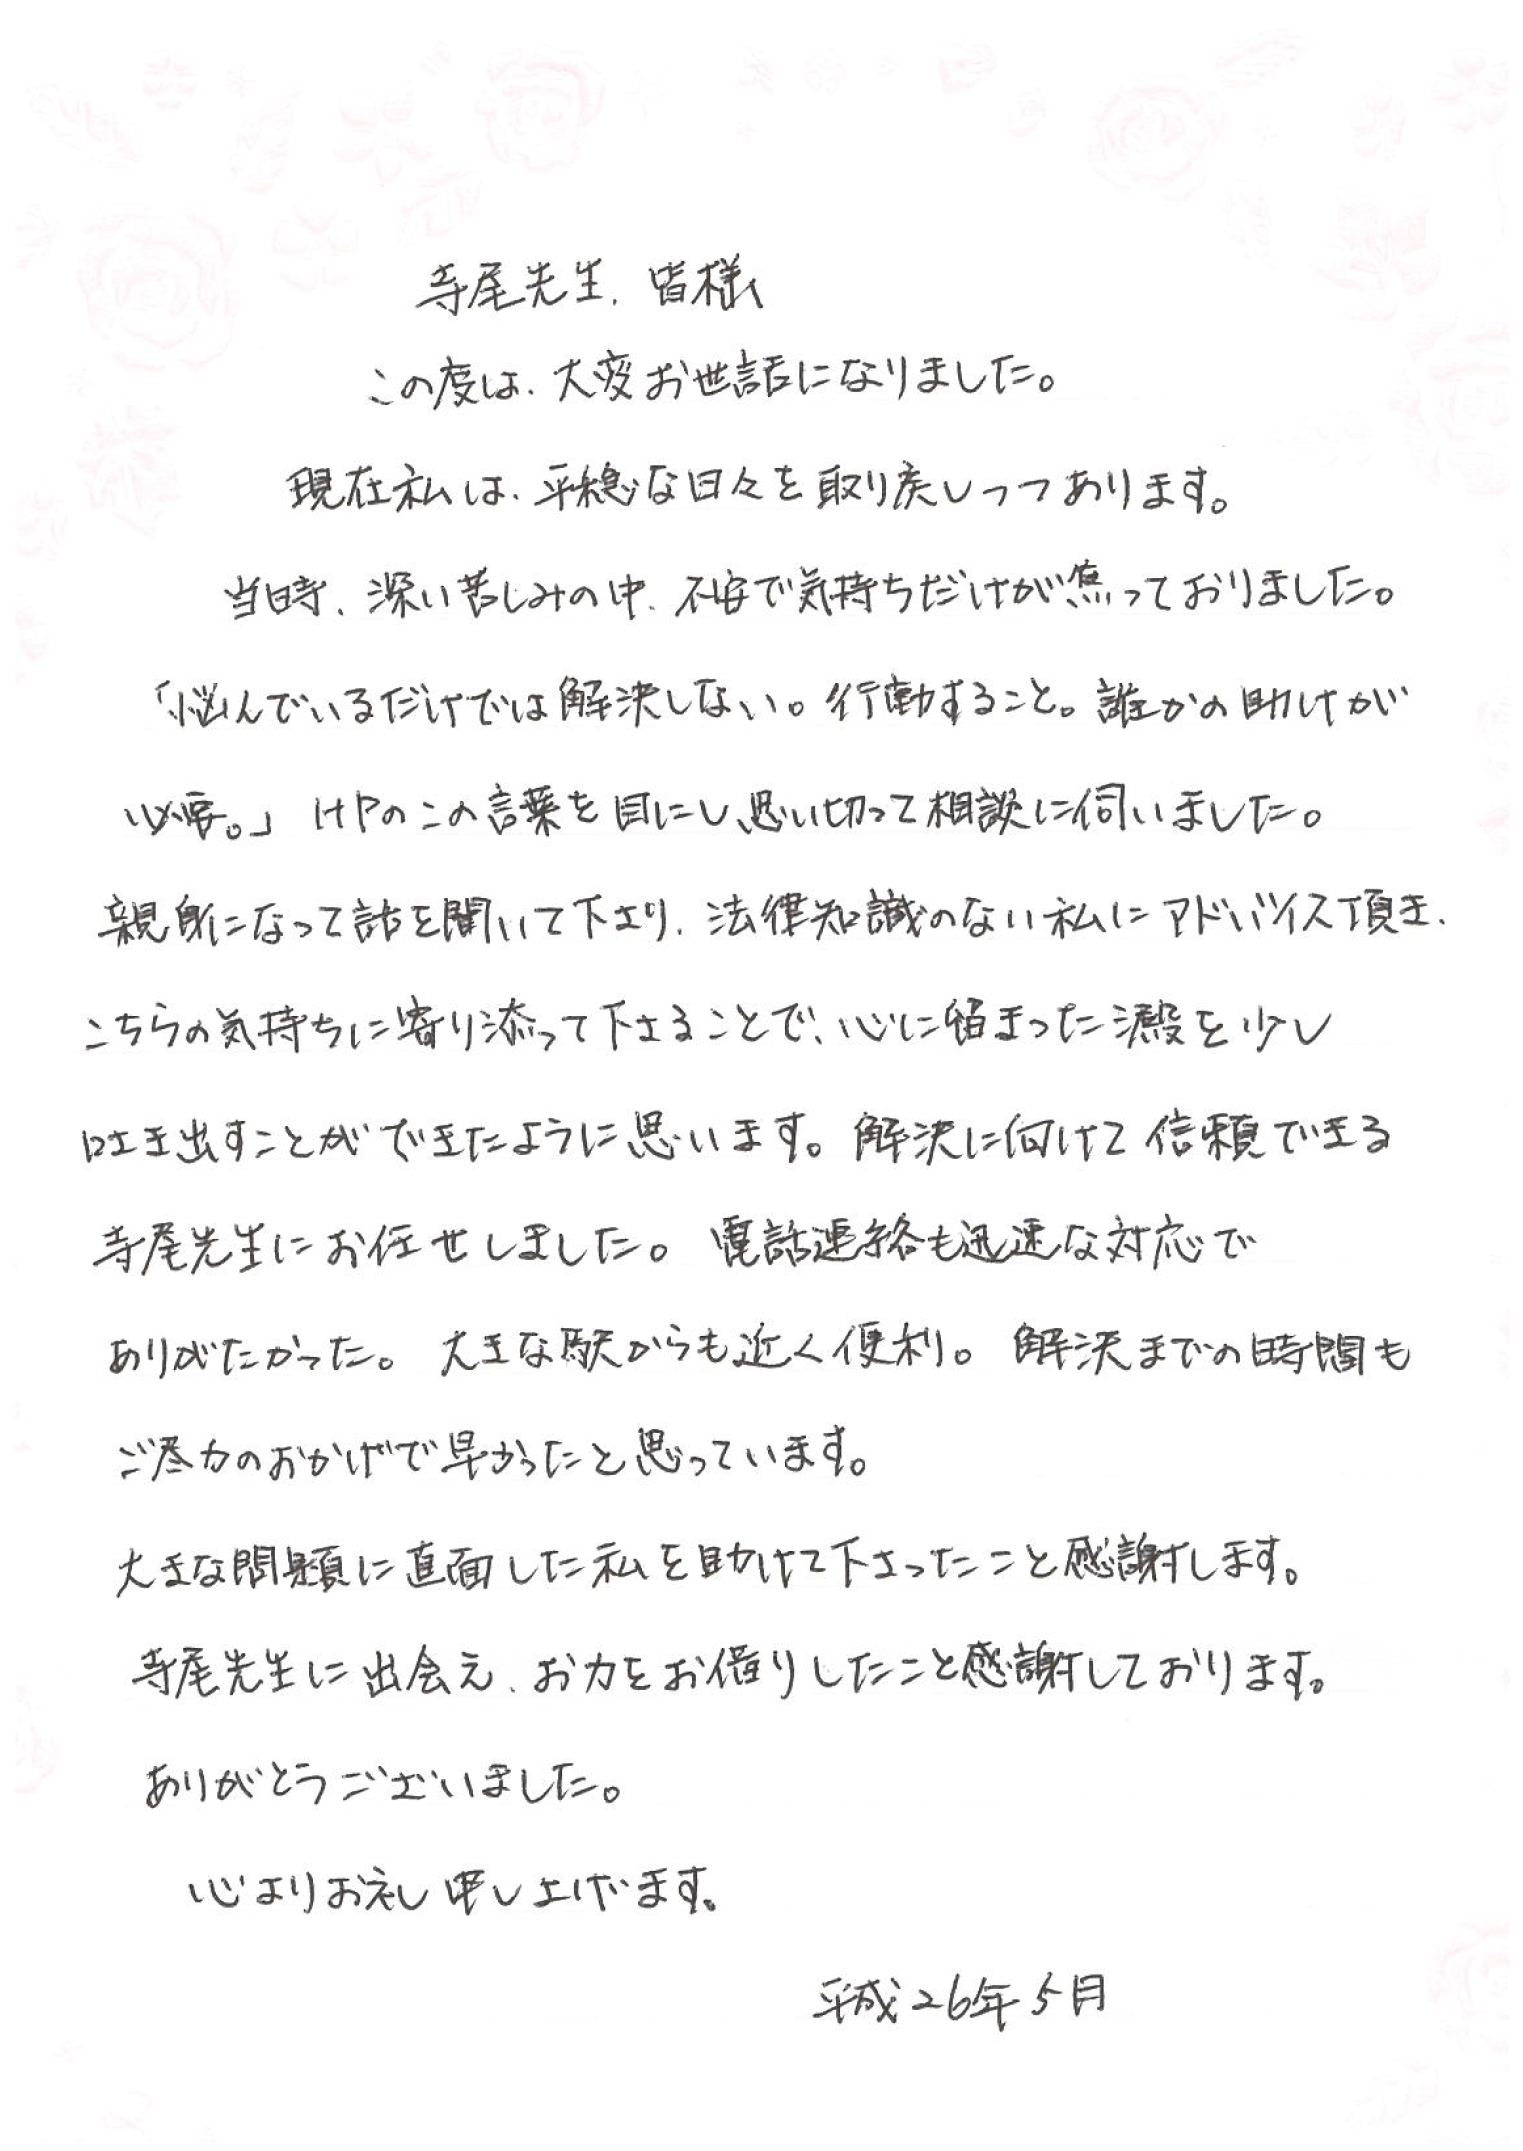 寺尾先生、皆様
この度は、大変お世話になりました。
現在私は、平穏な日々を取り戻しつつあります。
当時、深い苦しみの中、不安で気持ちだけが焦っておりました。
「悩んでいるだけでは解決しない。行動すること。誰かの助けが
必要。」HPのこの言葉を目にし、思い切って相談に伺いました。
親身になって話を聞いて下さり、法律知識のない私にアドバイス頂き、
こちらの気持ちに寄り添って下さることで、心に留まった澱を少し
吐き出すことができたように思います。解決に向けて信頼できる
寺尾先生にお任せしました。電話連絡も迅速な対応で
ありがたかった。大きな駅からも近く便利。解決までの時間も
ご尽力のおかげで早かったと思っています。
大きな問題に直面した私を助けて下さったこと感謝します。
寺尾先生に出会え、お力をお借りしたこと感謝しております。
ありがとうございました。
心よりお礼申し上げます。
平成26年5月